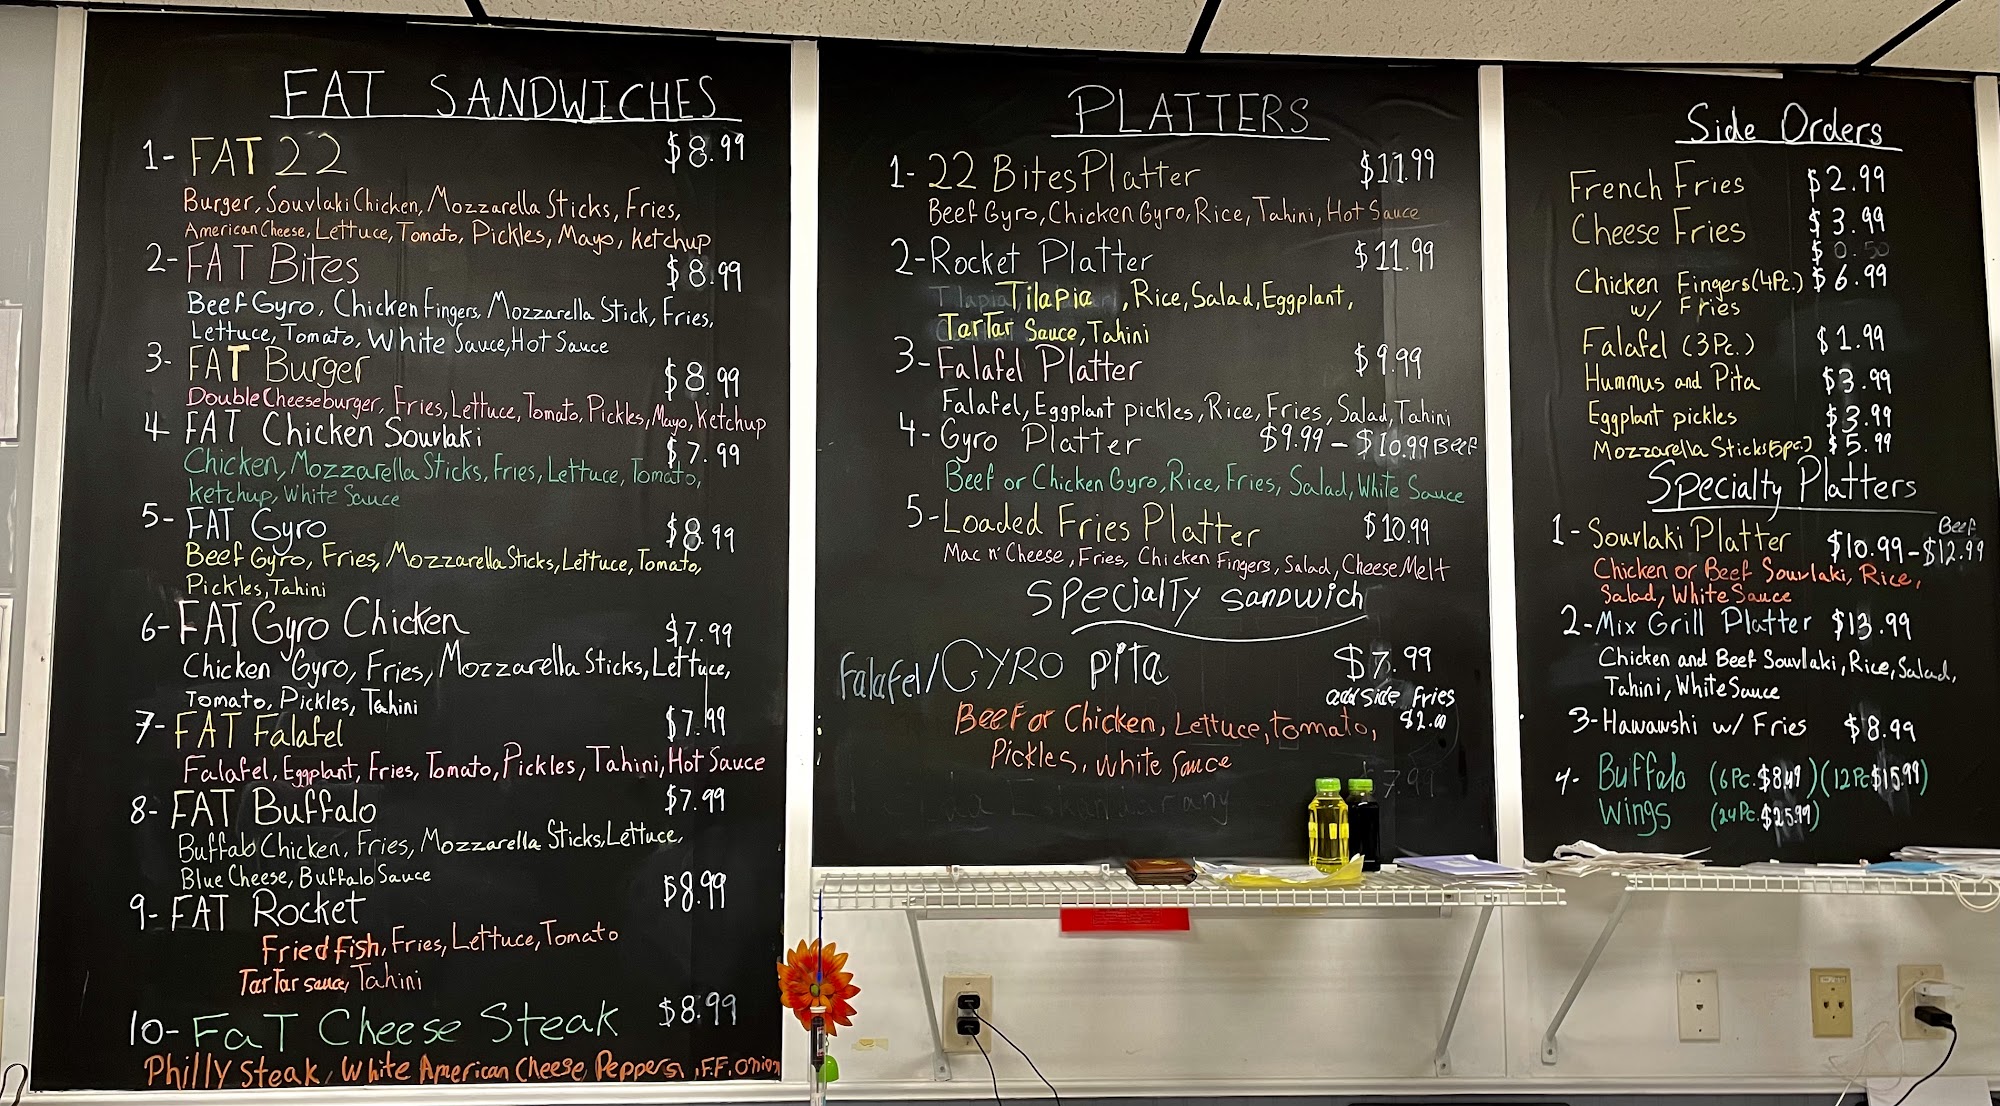 FAT SANDWICHES
1- FAT 22 $8.99
Burger, Souvlaki Chicken, Mozzarella Sticks, Fries,
American Cheese, Lettuce, Tomato, Pickles, Mayo, Ketchup
2- FAT Bites $8.99
Beef Gyro, Chicken Fingers, Mozzarella Stick, Fries,
Lettuce, Tomato, White Sauce, Hot Sauce
3- FAT Burger $8.99
Double Cheeseburger, Fries, Lettuce, Tomato, Pickles, Mayo, Ketchup
4 FAT Chicken Souvlaki $7.99
Chicken, Mozzarella Sticks, Fries, Lettuce, Tomato,
Ketchup, White Sauce
5- FAT Gyro $8.99
Beef Gyro, Fries, Mozzarella Sticks, Lettuce, Tomato,
Pickles, Tahini
6- FAT Gyro Chicken $7.99
Chicken Gyro, Fries, Mozzarella Sticks, Lettuce,
Tomato, Pickles, Tahini
7- FAT Falafel $7.99
Falafel, Eggplant, Fries, Tomato, Pickles, Tahini, Hot Sauce
8- FAT Buffalo $7.99
Buffalo Chicken, Fries, Mozzarella Sticks, Lettuce,
Blue Cheese, Buffalo Sauce
9- FAT Rocket $8.99
Fried fish, Fries, Lettuce, Tomato
TarTar sauce, Tahini
10- FaT Cheese Steak $8.99
Philly Steak, White American Cheese, Peppers, F.F. onion
PLATTERS
1- 22 Bites Platter $11.99
Beef Gyro, Chicken Gyro, Rice, Tahini, Hot Sauce
2- Rocket Platter $11.99
Tilapia, Rice, Salad, Eggplant,
TarTar Sauce, Tahini
3- Falafel Platter $9.99
Falafel, Eggplant pickles, Rice, Fries, Salad, Tahini
4- Gyro Platter $9.99 - $10.99 Beef
Beef or Chicken Gyro, Rice, Fries, Salad, White Sauce
5- Loaded Fries Platter $10.99
Mac n' Cheese, Fries, Chicken Fingers, Salad, Cheese Melt
Specialty Sandwich
Falafel/GYRO pita $7.99
add side fries
$2.00
Beef or Chicken, Lettuce, Tomato,
Pickles, white Sauce
$7.99
Side Orders
French Fries $2.99
Cheese Fries $3.99
$0.50
Chicken Fingers (4Pc.) $6.99
w/ Fries
Falafel (3Pc.) $1.99
Hummus and Pita $3.99
Eggplant pickles $3.99
Mozzarella Sticks (5pc.) $5.99
Specialty Platters
1- Souvlaki Platter $10.99 - $12.99 Beef
Chicken or Beef Souvlaki, Rice,
Salad, White Sauce
2- Mix Grill Platter $13.99
Chicken and Beef Souvlaki, Rice, Salad,
Tahini, White Sauce
3- Hawawshi w/ Fries $8.99
4- Buffalo (6Pc. $8.49) (12Pc $15.99)
Wings (24Pc. $25.99)